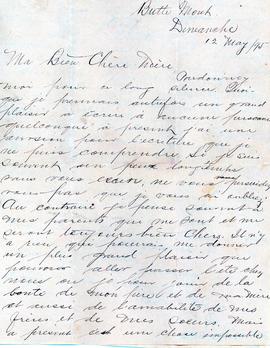 Butte Mont
Dimanche
12 May/95
Ma Bien Chère Mère
Pardonnez
moi pour ce long silence. Quoi
que je prennais autrefois un grand
plaisir a écrire à aucune personne
quelconque à present j'ai une
pour l'écriture que je
ne puis comprendre. Si je suis
souvent un peu longtemps
sans vous ecrire, ne vous
pas que je vous ai oubliez
Au contraire je pense souvent à
mes parents qui me sont et me
seront toujours bien Chers. Il n'y
a rien qui pourrais me donner
un plus grand plaisir que
pouvoir aller passer l'été chez
nous ou je pour jouir de la
bonté de mon pere et de ma mère
et aussi de l'amabilité de mes
freres et de mes soeurs. Mais
a present c'est une chose impossible